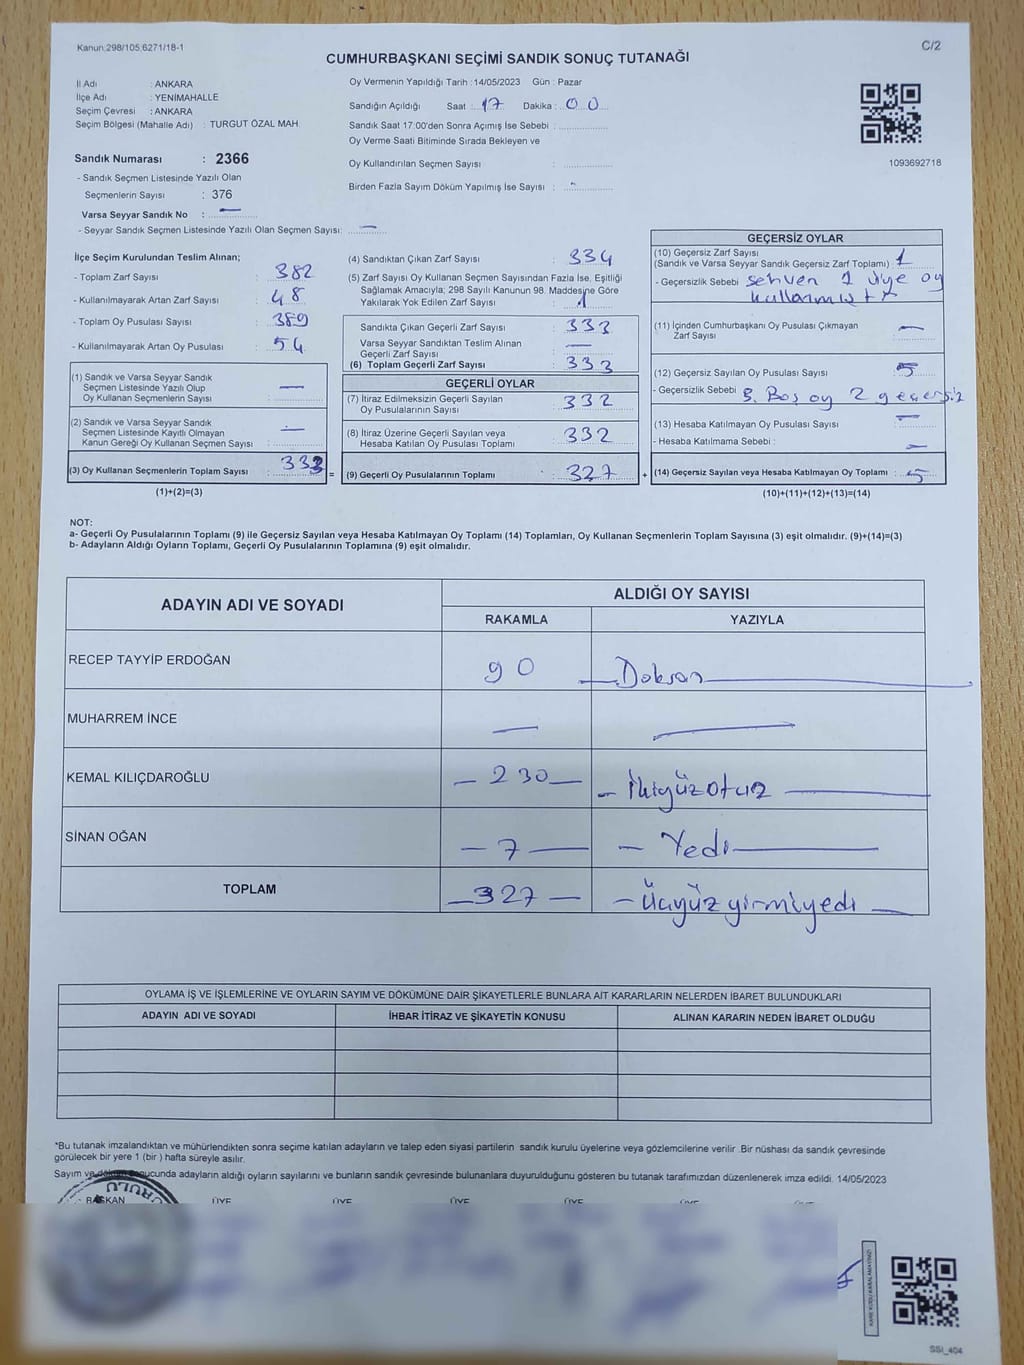 Kanun.298/105,6271/18-1
C/2
CUMHURBAŞKANI SEÇİMİ SANDIK SONUÇ TUTANAĞI
İl Adı : ANKARA
İlçe Adı : YENİMAHALLE
Seçim Çevresi : ANKARA
Seçim Bölgesi (Mahalle Adı) : TURGUT ÖZAL MAH.
Oy Vermenin Yapıldığı Tarih : 14/05/2023 Gün : Pazar
Sandığın Açıldığı Saat : 17 Dakika : 00
Sandık Saat 17:00'den Sonra Açımış İse Sebebi :
Oy Verme Saati Bitiminde Sırada Bekleyen ve
Oy Kullandırılan Seçmen Sayısı :
Birden Fazla Sayım Döküm Yapılmış İse Sayısı : -
1093692718
Sandık Numarası : 2366
- Sandık Seçmen Listesinde Yazılı Olan
Seçmenlerin Sayısı : 376
Varsa Seyyar Sandık No : —
- Seyyar Sandık Seçmen Listesinde Yazılı Olan Seçmen Sayısı: —
İlçe Seçim Kurulundan Teslim Alınan;
- Toplam Zarf Sayısı : 382
- Kullanılmayarak Artan Zarf Sayısı : 48
- Toplam Oy Pusulası Sayısı : 389
- Kullanılmayarak Artan Oy Pusulası : 54
(1) Sandık ve Varsa Seyyar Sandık
Seçmen Listesinde Yazılı Olup
Oy Kullanan Seçmenlerin Sayısı : —
(2) Sandık ve Varsa Seyyar Sandık
Seçmen Listesinde Kayıtlı Olmayan
Kanun Gereği Oy Kullanan Seçmen Sayısı : —
(3) Oy Kullanan Seçmenlerin Toplam Sayısı : 333
(1)+(2)=(3)
(4) Sandıktan Çıkan Zarf Sayısı : 334
(5) Zarf Sayısı Oy Kullanan Seçmen Sayısından Fazla İse, Eşitliği
Sağlamak Amacıyla; 298 Sayılı Kanunun 98. Maddesine Göre
Yakılarak Yok Edilen Zarf Sayısı : 1
Sandıkta Çıkan Geçerli Zarf Sayısı : 333
Varsa Seyyar Sandıktan Teslim Alınan
Geçerli Zarf Sayısı : —
(6) Toplam Geçerli Zarf Sayısı : 333
GEÇERLİ OYLAR
(7) İtiraz Edilmeksizin Geçerli Sayılan
Oy Pusulalarının Sayısı : 332
(8) İtiraz Üzerine Geçerli Sayılan veya
Hesaba Katılan Oy Pusulası Toplamı : 332
= (9) Geçerli Oy Pusulalarının Toplamı : 327 +
GEÇERSİZ OYLAR
(10) Geçersiz Zarf Sayısı
(Sandık ve Varsa Seyyar Sandık Geçersiz Zarf Toplamı) : 1
- Geçersizlik Sebebi : sehven 1 üye oy
kullanmıştır
(11) İçinden Cumhurbaşkanı Oy Pusulası Çıkmayan
Zarf Sayısı : —
(12) Geçersiz Sayılan Oy Pusulası Sayısı : 5
- Geçersizlik Sebebi : 3. Boş oy 2 geçersiz
(13) Hesaba Katılmayan Oy Pusulası Sayısı : —
- Hesaba Katılmama Sebebi : —
(14) Geçersiz Sayılan veya Hesaba Katılmayan Oy Toplamı : 5
(10)+(11)+(12)+(13)=(14)
NOT:
a- Geçerli Oy Pusulalarının Toplamı (9) ile Geçersiz Sayılan veya Hesaba Katılmayan Oy Toplamı (14) Toplamları, Oy Kullanan Seçmenlerin Toplam Sayısına (3) eşit olmalıdır. (9)+(14)=(3)
b- Adayların Aldığı Oyların Toplamı, Geçerli Oy Pusulalarının Toplamına (9) eşit olmalıdır.
ADAYIN ADI VE SOYADI
ALDIĞI OY SAYISI
RAKAMLA YAZIYLA
RECEP TAYYİP ERDOĞAN 90 — Doksan —
MUHARREM İNCE — —
KEMAL KILIÇDAROĞLU — 230 — — İkiyüzotuz —
SİNAN OĞAN — 7 — — Yedi —
TOPLAM — 327 — — Üçyüzyirmiyedi —
OYLAMA İŞ VE İŞLEMLERİNE VE OYLARIN SAYIM VE DÖKÜMÜNE DAİR ŞİKAYETLERLE BUNLARA AİT KARARLARIN NELERDEN İBARET BULUNDUKLARI
ADAYIN ADI VE SOYADI İHBAR İTİRAZ VE ŞİKAYETİN KONUSU ALINAN KARARIN NEDEN İBARET OLDUĞU
*Bu tutanak imzalandıktan ve mühürlendikten sonra seçime katılan adayların ve talep eden siyasi partilerin sandık kurulu üyelerine veya gözlemcilerine verilir. Bir nüshası da sandık çevresinde
görülecek bir yere 1 (bir ) hafta süreyle asılır.
Sayım ve döküm sonucunda adayların aldığı oyların sayılarını ve bunların sandık çevresinde bulunanlara duyurulduğunu gösteren bu tutanak tarafımızdan düzenlenerek imza edildi. 14/05/2023
BAŞKAN ÜYE ÜYE ÜYE ÜYE ÜYE ÜYE
KARE KODU KARALAMAYINIZ!
SSI_404